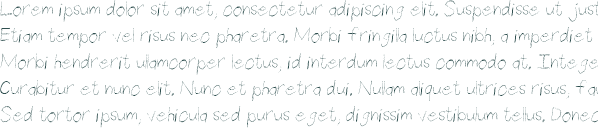 Lorem ipsum dolor sit amet, consectetur adipiscing elit. Suspendisse ut just
Etiam tempor vel risus nec pharetra. Morbi fringilla luctus nibh, a imperdiet
Morbi hendrerit ullamcorper lectus, id interdum lectus commodo at. Intege
Curabitur et nunc elit. Nunc et pharetra dui. Nullam aliquet ultrices risus, f
Sed tortor ipsum, vehicula sed purus eget, dignissim vestibulum tellus. Donec